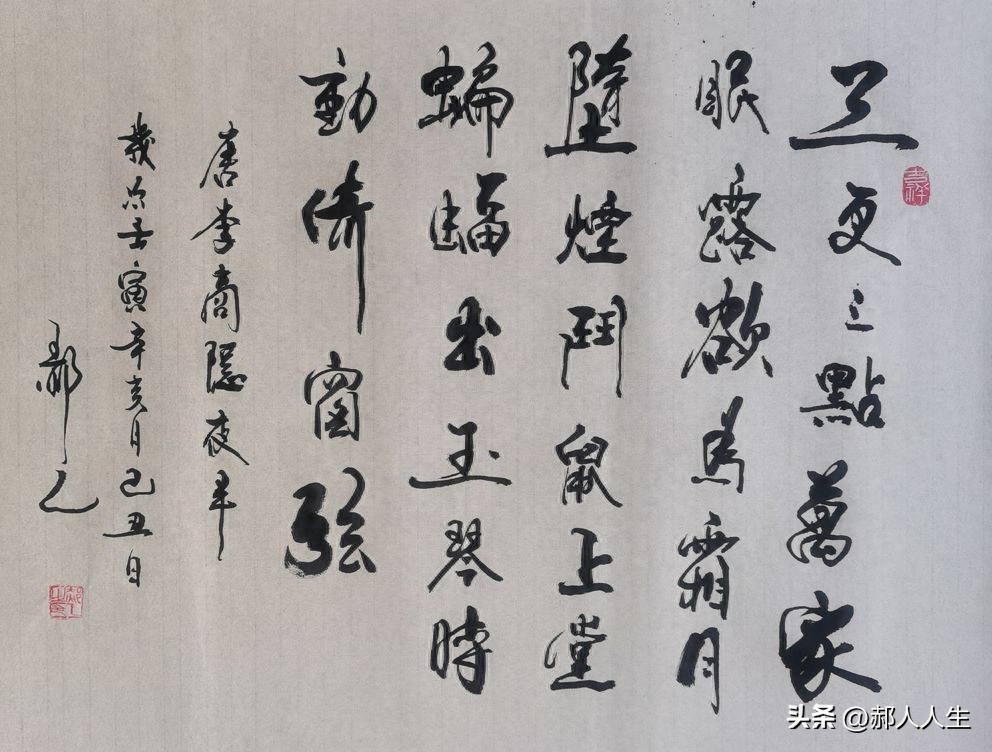 三更三點萬家
眠露欲為霜月
墮煙鬥鼠上堂
蝙蝠出玉琴時
動倚窗弦
唐李商隱夜半
歲次壬寅辛亥月己丑日
頭条 @郝人人生